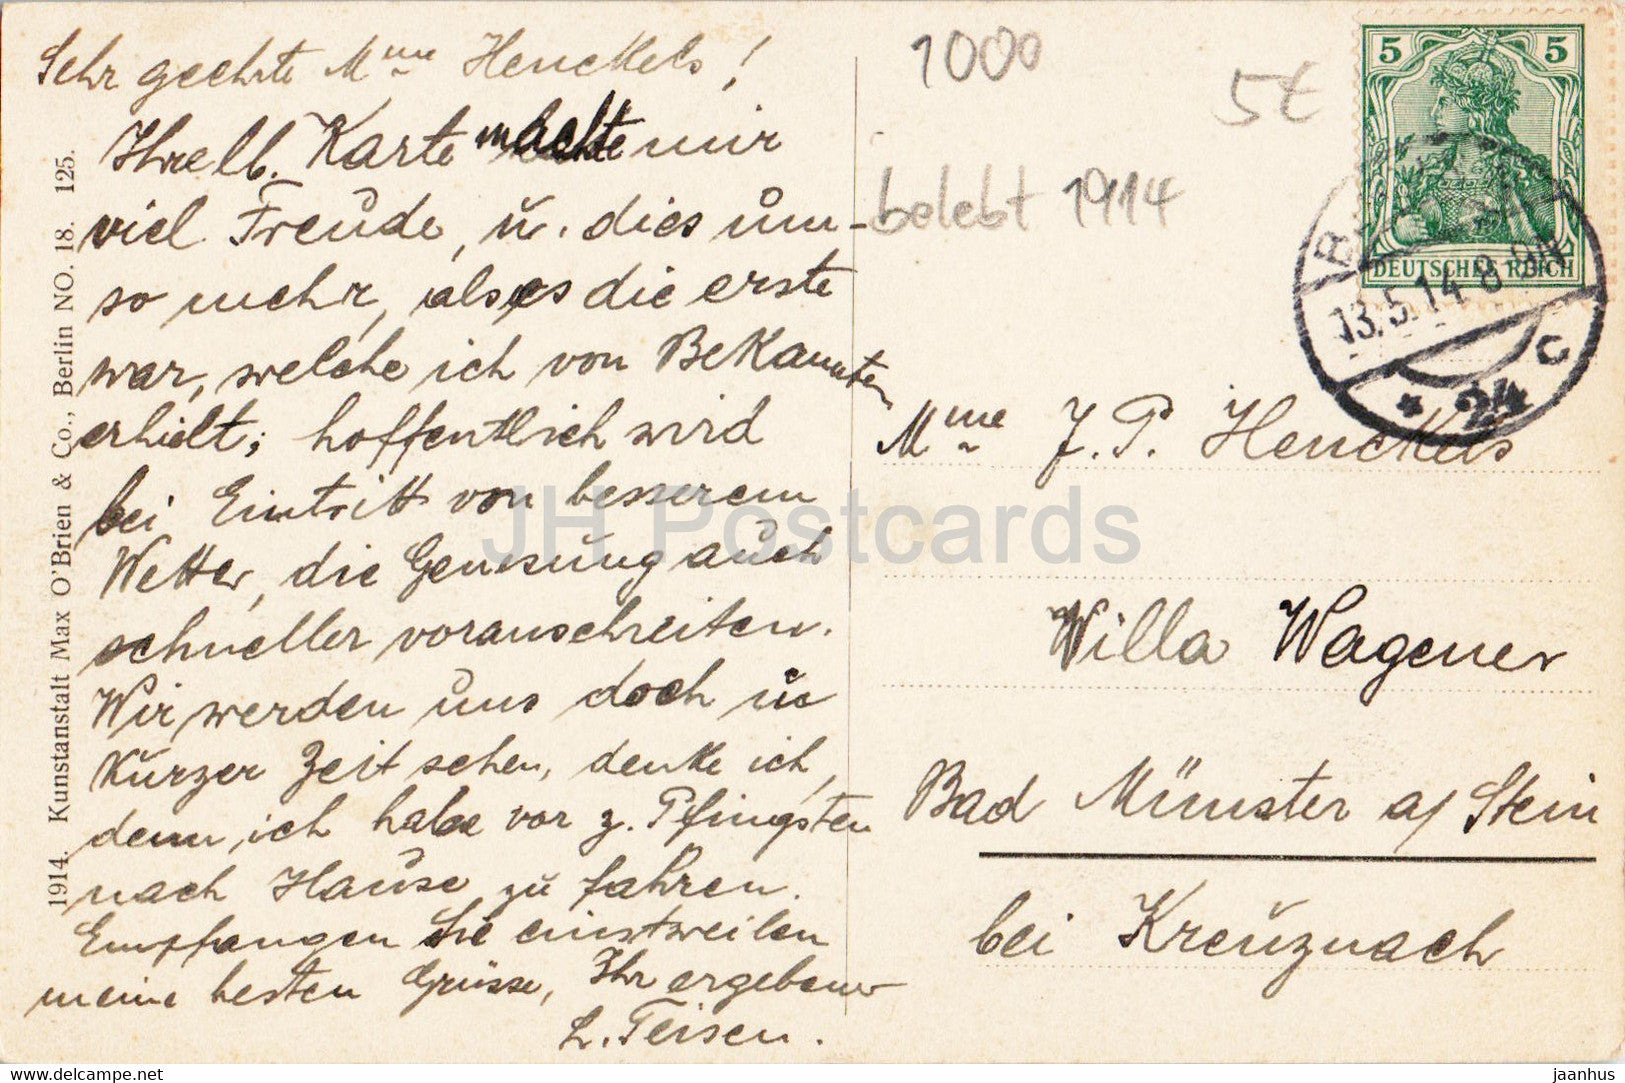 Sehr geehrte Mme Henckels!
Ihre lb. Karte machte mir
viel Freude, u. dies um-
so mehr, als es die erste
war, welche ich von Bekannten
erhielt; hoffentlich wird
bei Eintritt von besserem
Wetter, die Genesung auch
schneller voranschreiten.
Wir werden uns doch in
kurzer Zeit sehen, denke ich,
denn ich habe vor z. Pfingsten
nach Hause zu fahren.
Empfangen Sie einstweilen
meine besten Grüsse, Ihr ergebener
L. Teisen.
1914. Kunstanstalt Max O'Brien & Co., Berlin NO. 18. 125.
1000
5€
belebt 1914
5 5
DEUTSCHES REICH
13.5.14 8-9N
* 24 C
Mme J. P. Henckels
Willa Wagener
Bad Münster a/ Stein
bei Kreuznach
JH Postcards
www.delcampe.net
jaanhus